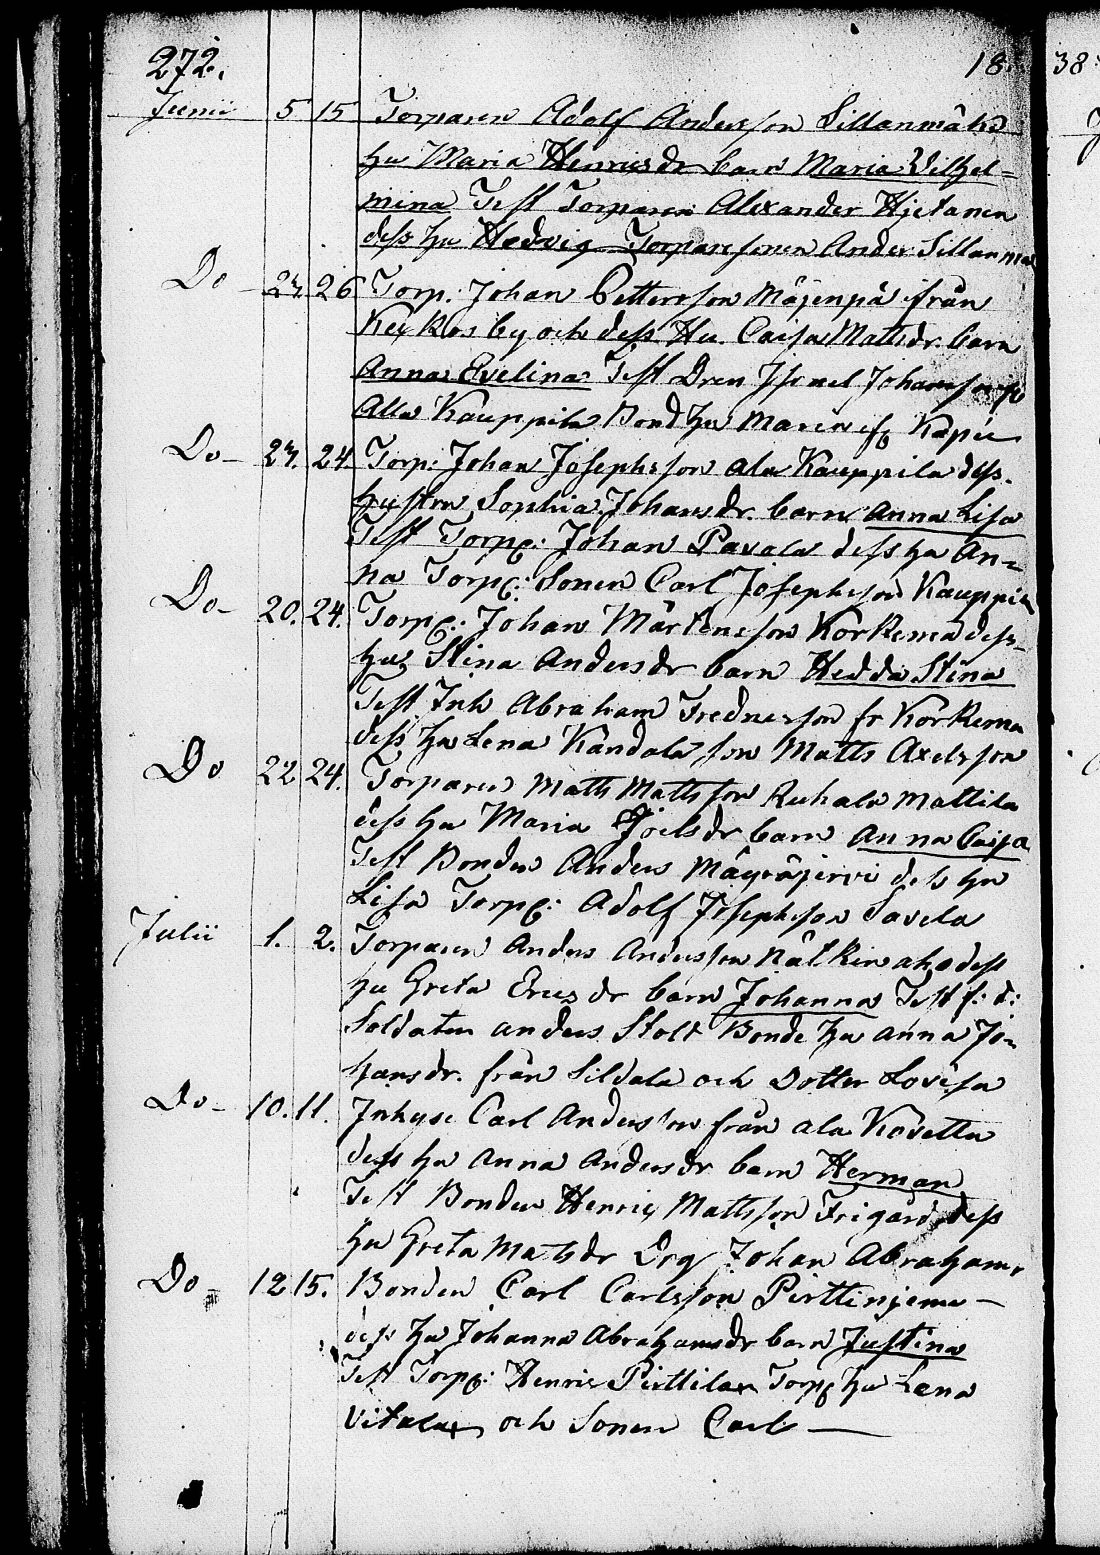 272. 18 38
Junii 5 15 Torparen Adolf Andersson Sillanmäki
hu Maria Henricsdr barn Maria Vilhel=
mina Test Torparen Alexander Hjetanen
dess hu Hedvig Torparesonen Ander Sillanmä
Do 24. 26 Torp. Johan Pettersson Mäjenpä från
by och dess Hu Caisa Mattsdr. barn
Anna Evelina Test Dren Johansson
Ala Kauppila Bond hu Maria
Do – 23. 24 Torp: Johan Josephsson ala Kauppila dess
hustru Sophia Johansdr. barn Anna Lisa
Test Torp: Johan Pavola dess hu An=
na Torp: Sonen Carl Josephsson Kauppila
Do – 20. 24. Torp: Johan Mårtensson Korkema dess
hu Stina Andersdr barn Hedda Stina
Test Inh Abraham fr Korkema
dess hu Lena Kandola son Matts Axelsson
Do 22 24. Torparen Matts Mattsson Ruhala Mattila
dess hu Maria Joelsdr barn Anna Caisa
Test Bonden Anders Mäyräjervi dess hu
Lisa Torp: Adolf Josephsson Savela
Julii 1. 2. Torparen Anders Andersson Nätkinaho dess
hu Greta Ericsdr barn Johanna Test f: d:
Soldaten Anders Stolt Bonde hu Anna Jo=
hansdr. från Sildala och Dotter Lovisa
Do – 10. 11. Inhyse Carl Andersson från ala Kovetta
dess hu Anna Andersdr barn Herman
Test Bonden Henric Mattsson Frigård dess
hu Greta Matsdr Drg Johan Abrahams
Do – 12 15. Bonden Carl Carlsson Pirttinjema –
dess hu Johanna Abrahamsdr barn Justina
Test Torp: Henric Pirttila Torp hu Lena
Vitala och Sonen Carl —